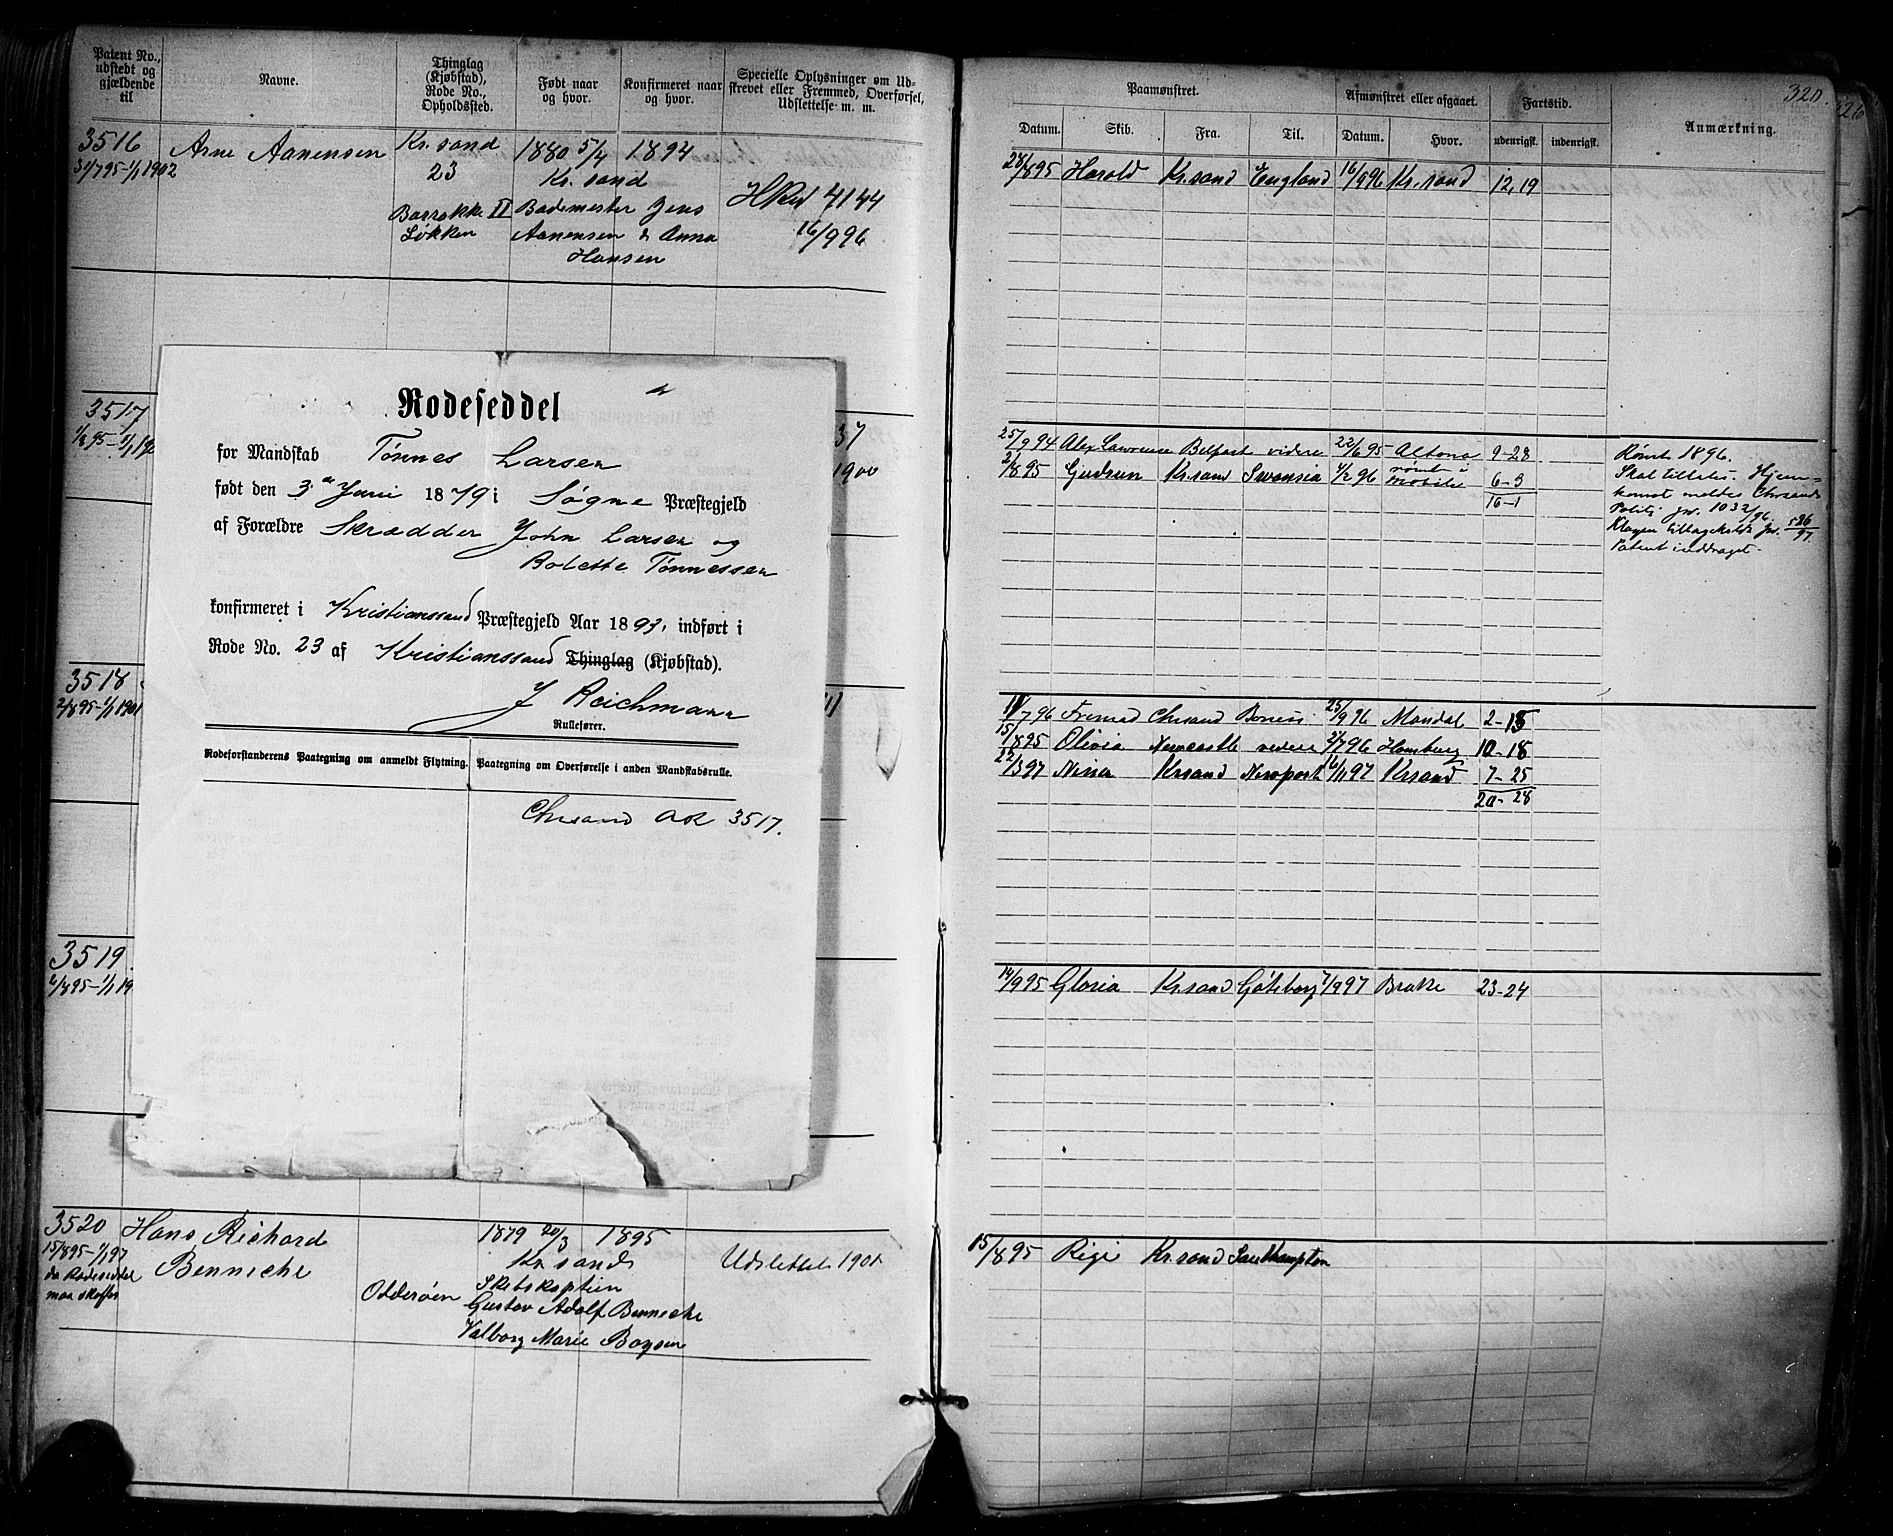 Patent No., udstedt og gjældende til
Navne.
Thinglag (Kjøbstad), Rode No., Opholdssted.
Født naar og hvor.
Konfirmeret naar og hvor.
Specielle Oplysninger om Udskrevet eller Fremmed, Overførsel, Udslettelse m. m.
3516
31/7 95 - 1/1 1902
Arne Aanensen
Kr.sand
23
Barrakke II
Løkken
1880 5/4 1894
Kr. sand
Bademester Jens
Aanensen & Anna
Hansen
4144
16/9 96
3517
1/8 95 - 1/1 19
37
1900
Rodeseddel
for Mandskab Tønnes Larsen
født den 3 Juni 1879 i Søgne Præstegjeld
af Forældre Skrædder John Larsen og
Bolette Tønnessen
konfirmeret i Kristianssand Præstegjeld Aar 1893, indført i
Rode No. 23 af Kristianssand Thinglag (Kjøbstad).
J Reichmann
Rullefører.
Rodeforstanderens Paategning om anmeldt Flytning.
Paategning om Overførelse i anden Mandskabsrulle.
Chrsand AR 3517.
3518
2/8 95 - 1/1 1901
3519.
6/8 95 - 1/1 19
3520
15/8 95 - 1/1 97
da Rodeseddel
maa skaffes
Hans Richard
Benneche
Odderøen
1879 20/3 1895
Kr. sand
Skibskaptein
Gustav Adolf Benneche
Valborg Marie Boysen
Udslettet 1901
320.
Paamønstret.
Afmønstret eller afgaaet.
Fartstid.
Anmærkning.
Datum. Skib. Fra. Til. Datum. Hvor. udenrigsk. indenrigsk.
28/8 95 Harold Kr.sand England 16/9 96 Kr.sand 12,19
25/9 94 Alex Lawrence Belfast videre 22/6 95 Altona 9-28
2/8 95 Gudrun Kr.sand Swansea 4/2 96 rømt i Mobile 6-3
16-1
Rømt 1896.
Skal tiltales. Hjem-
komst meldes Chrsands
Politi jn. 1032/96
Klagen tilbagekaldt jn. 526/97.
Patent inddraget.
11/7 96 Fremad Chrsand Boness 25/9 96 Mandal 2-15
15/8 95 Olivia Newcastle videre 2/7 96 Hamburg 10-18
22/3 97 Nina Krsand Newport 16/11 97 Krsand 7-25
20-28
14/9 95 Gloria Kr.sand Göteborg 7/9 97 Brake 23-24
15/8 95 Rigi Kr.sand Southampton